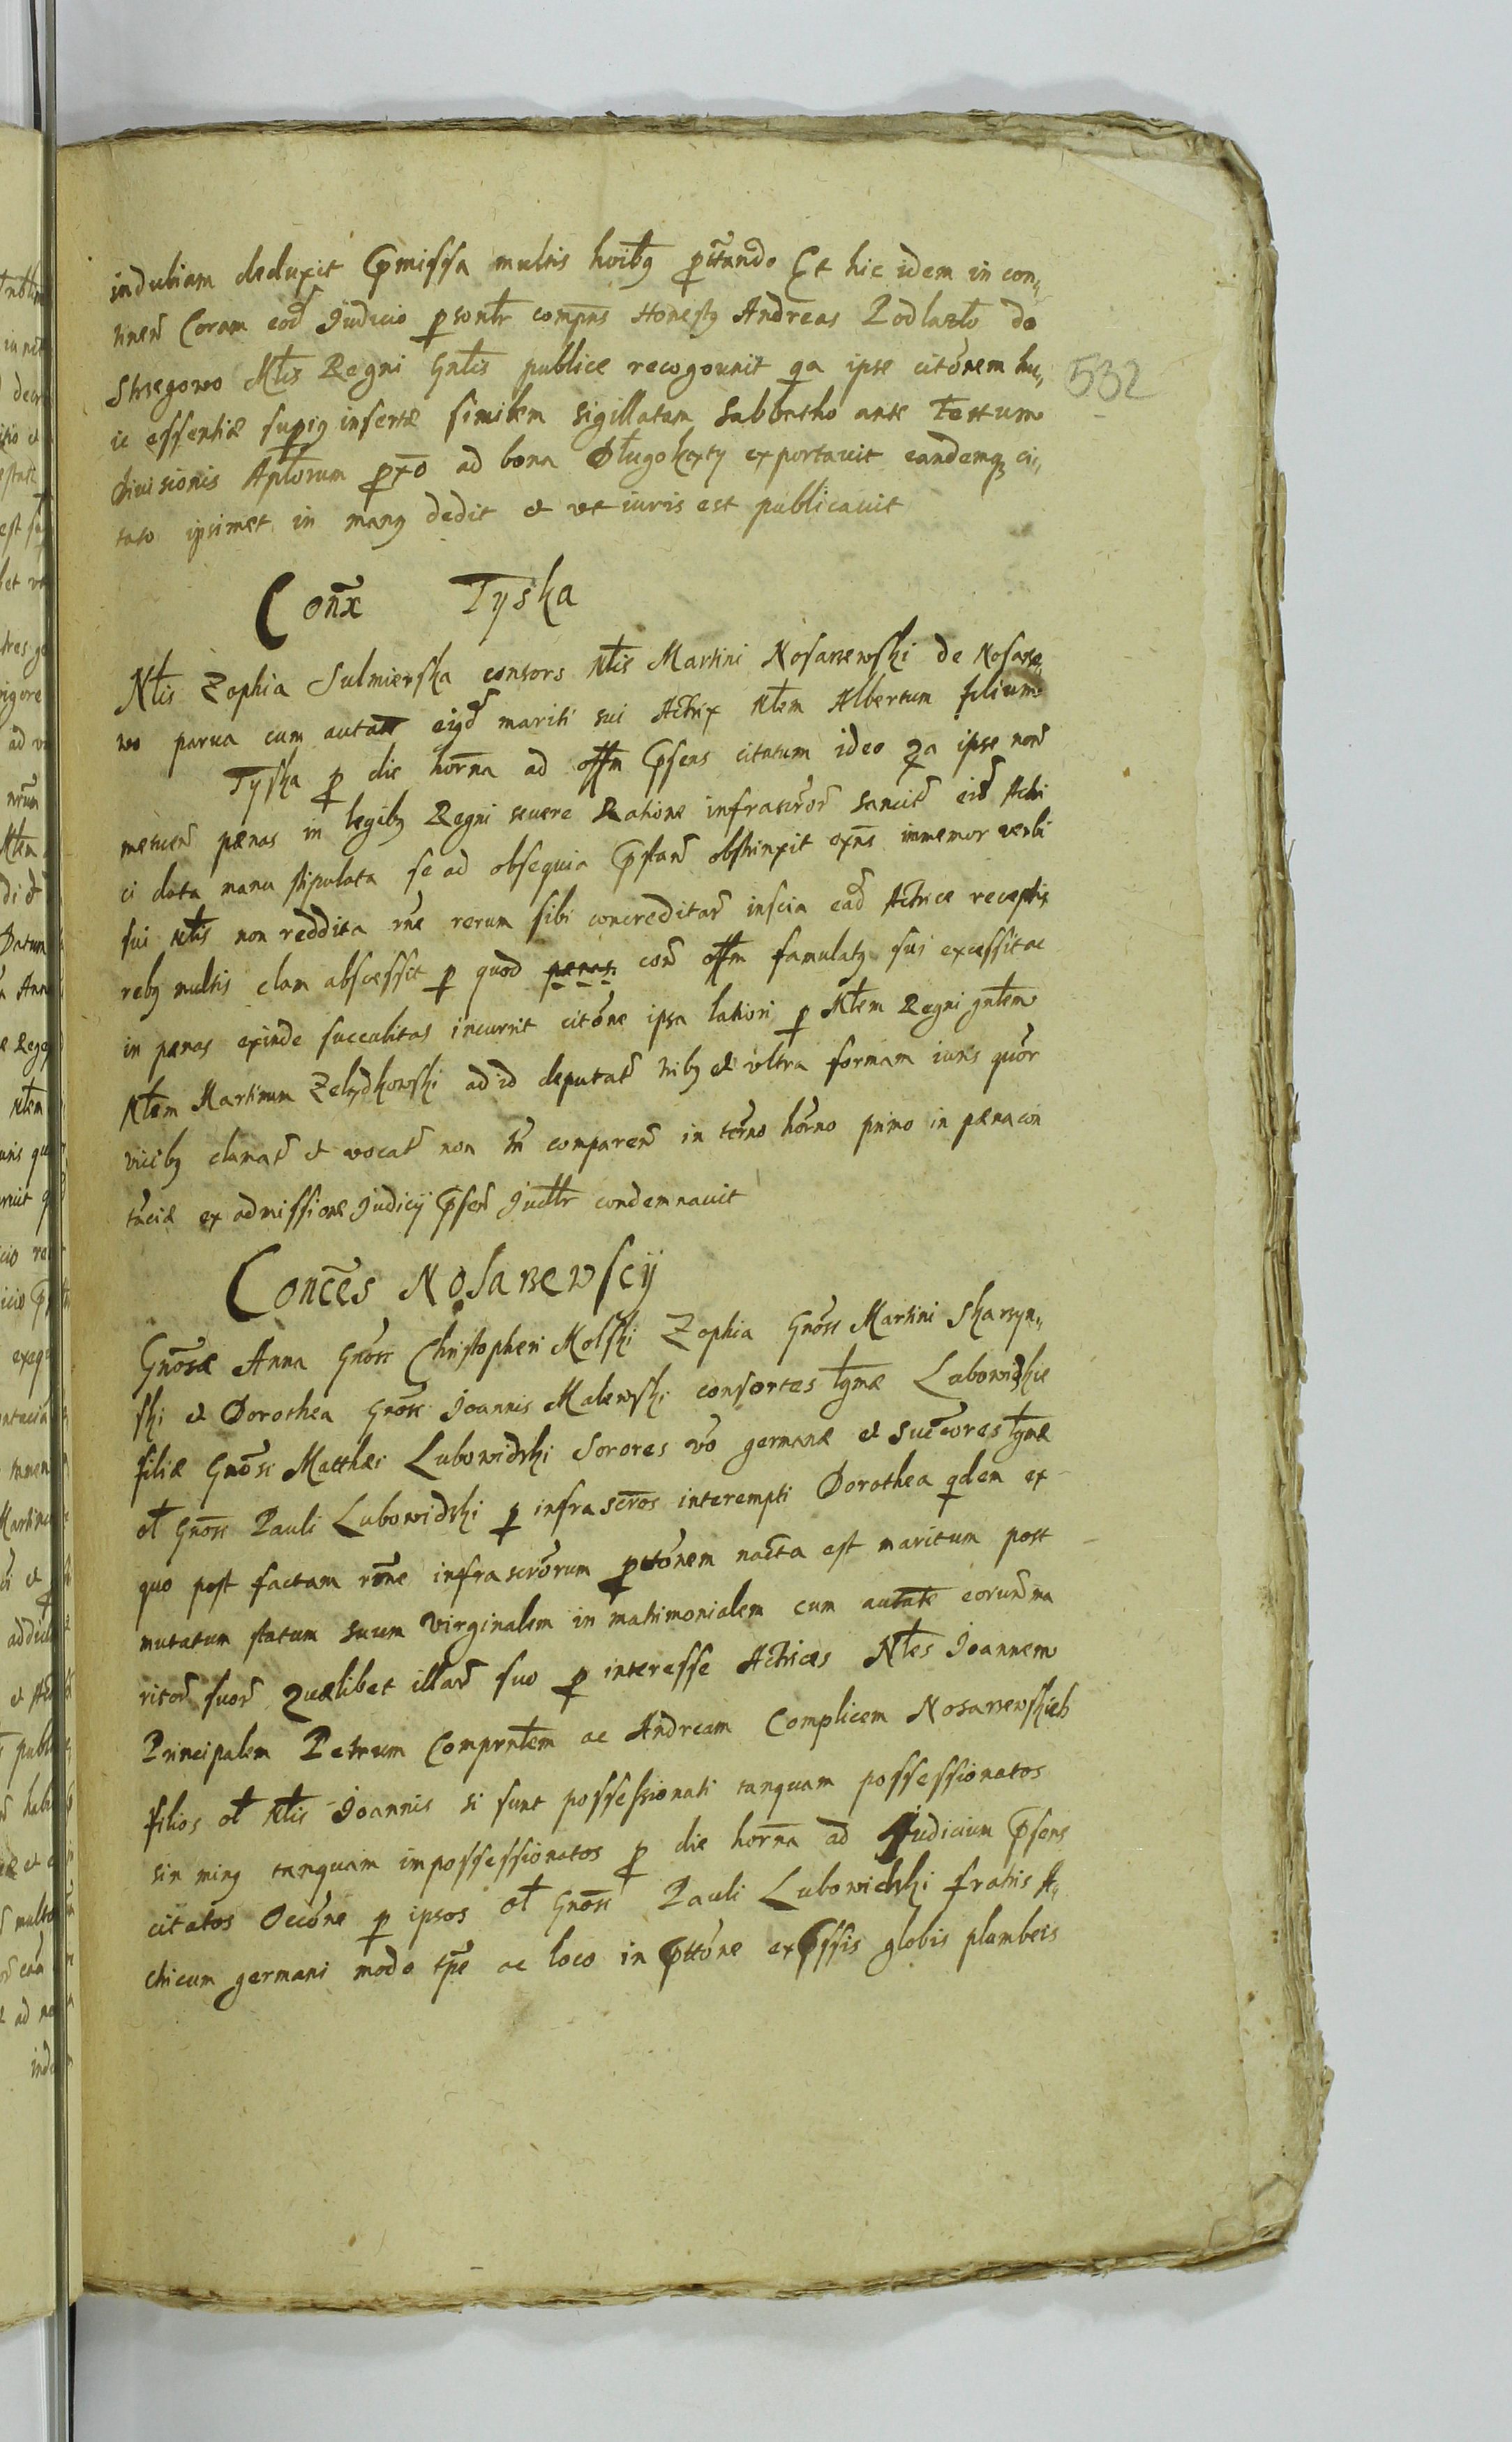 indubiam deduxit p̃missa multis hoibꝯ ꝓtt̃ando Et hic idem in con„
tinen̄ Coram eod̄ Judicio ꝑsonłr compn̄s Honestꝯ Andreas Podlaszło de
Strzegowo Młis Regni Gnłis publice recogouit qa ipse citōnem hu„
ic essentiæ supiꝯ insertæ similem sigillatam Sabbatho ante Festum
Diuisionis Apłorum ꝓxo ad bona Długokąty exportauit eandemqꝫ ci„
tato ipsimet in manꝯ dedit et vt iuris est publicauit
532
Con̄x Tyska
Nłis Zophia Sulmierska consors Nłis Martini Nosarzewski de Nosarze„
wo parua cum autate eiꝯd̄ mariti sui Actrix Nłem Albertum filium
Tyska ꝓ die horn̄a ad offm p̃sens citatum ideo qa ipse non̄
metuen̄ pænas in legibꝯ Regni seuere Ratione infrascr̄or̄ sancit̄ eid̄ Actri
ci data manu stipulata se ad obsequia p̃stan̄ obstrinxit exn̄s immemor verbi
sui Nłis non reddita rn̄e rerum sibi concreditar̄ inscia ead̄ Actrice receptis
rebꝯ multis clam abscessit ꝓ quod pænas con̄ offm famulatꝯ sui excessit ac
in pænas exinde succulitas incurrit citōne ipsa latiori ꝑ Nłem Regni gnłem
Nłem Martinum Zelazkowski ad id deputat̄ tribꝯ et vltra formam iuris quōr
vicibꝯ clamat̄ et vocat̄ non tn̄ comparen̄ in tērno hōrno primo in pæna con
tūciæ ex admissione Judicij p̃sen̄ Judłr condemnauit
Conc̄es Nosarzewscÿ
Gnōsæ Anna Gnōsi Christopheri Molski Zophia Gnōsi Martini Skarzyn„
ski et Dorothea Gnōsi Joannis Malewski consortes łgmæ Lubowidzkie
filiæ Gnōsi Matthæi Lubowidzki Sorores vō germanæ et Succ̄ores łgmæ
oł Gnōsi Pauli Lubowidzki ꝑ infrascr̄os interempti Dorothea qdem ex
quo post factam rōne infrascr̄orum ꝓttōnem nacta est maritum post
mutatum statum suum Virginalem in matrimonialem cum autate eorund̄ ma
ritor̄ suor̄ Quælibet illar̄ suo ꝓ interesse Actrices Nłes Joannem
Principalem Petrum Comprnłem ac Andream Complicem Nosarzewskich
filios oł Nłis Joannis si sunt possessionati tanquam possessionatos
sin minꝯ tanquam impossessionatos ꝓ die horn̄a ad Judicium p̃sens
citatos Occōne ꝑ ipsos oł Gnōsi Pauli Lubowidzki fratris A„
ctricum germani modo tp̄e ac loco in p̃ttōne exp̃ssis globis plumbeis